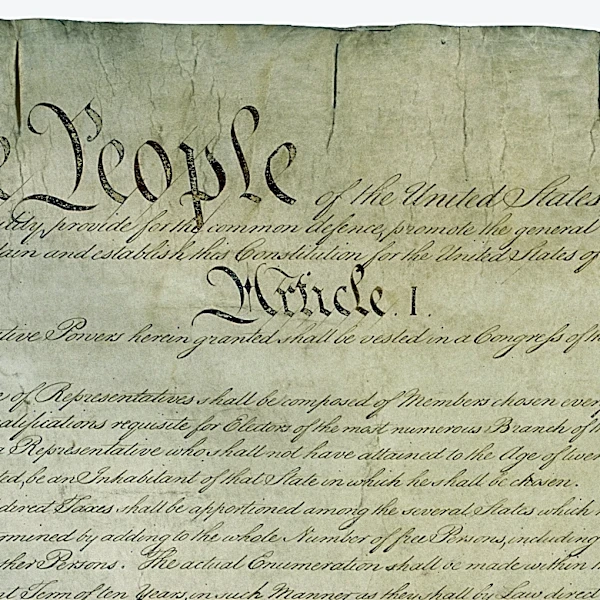 e People of the United States
ility, provide for the common defence, promote the general
dain and establish this Constitution for the United States of
Article. I.
ative Powers herein granted shall be vested in a Congress of th
e of Representatives shall be composed of Members chosen ever
alifications requisite for Electors of the most numerous Branch of th
a Representative who shall not have attained to the Age of twen
ted, be an Inhabitant of that State in which he shall be chosen.
direct Taxes shall be apportioned among the several States which
ermined by adding to the whole Number of free Persons, including
ther Persons. The actual Enumeration shall be made within
nt Term of ten Years, in such Manner as they shall by Law direct